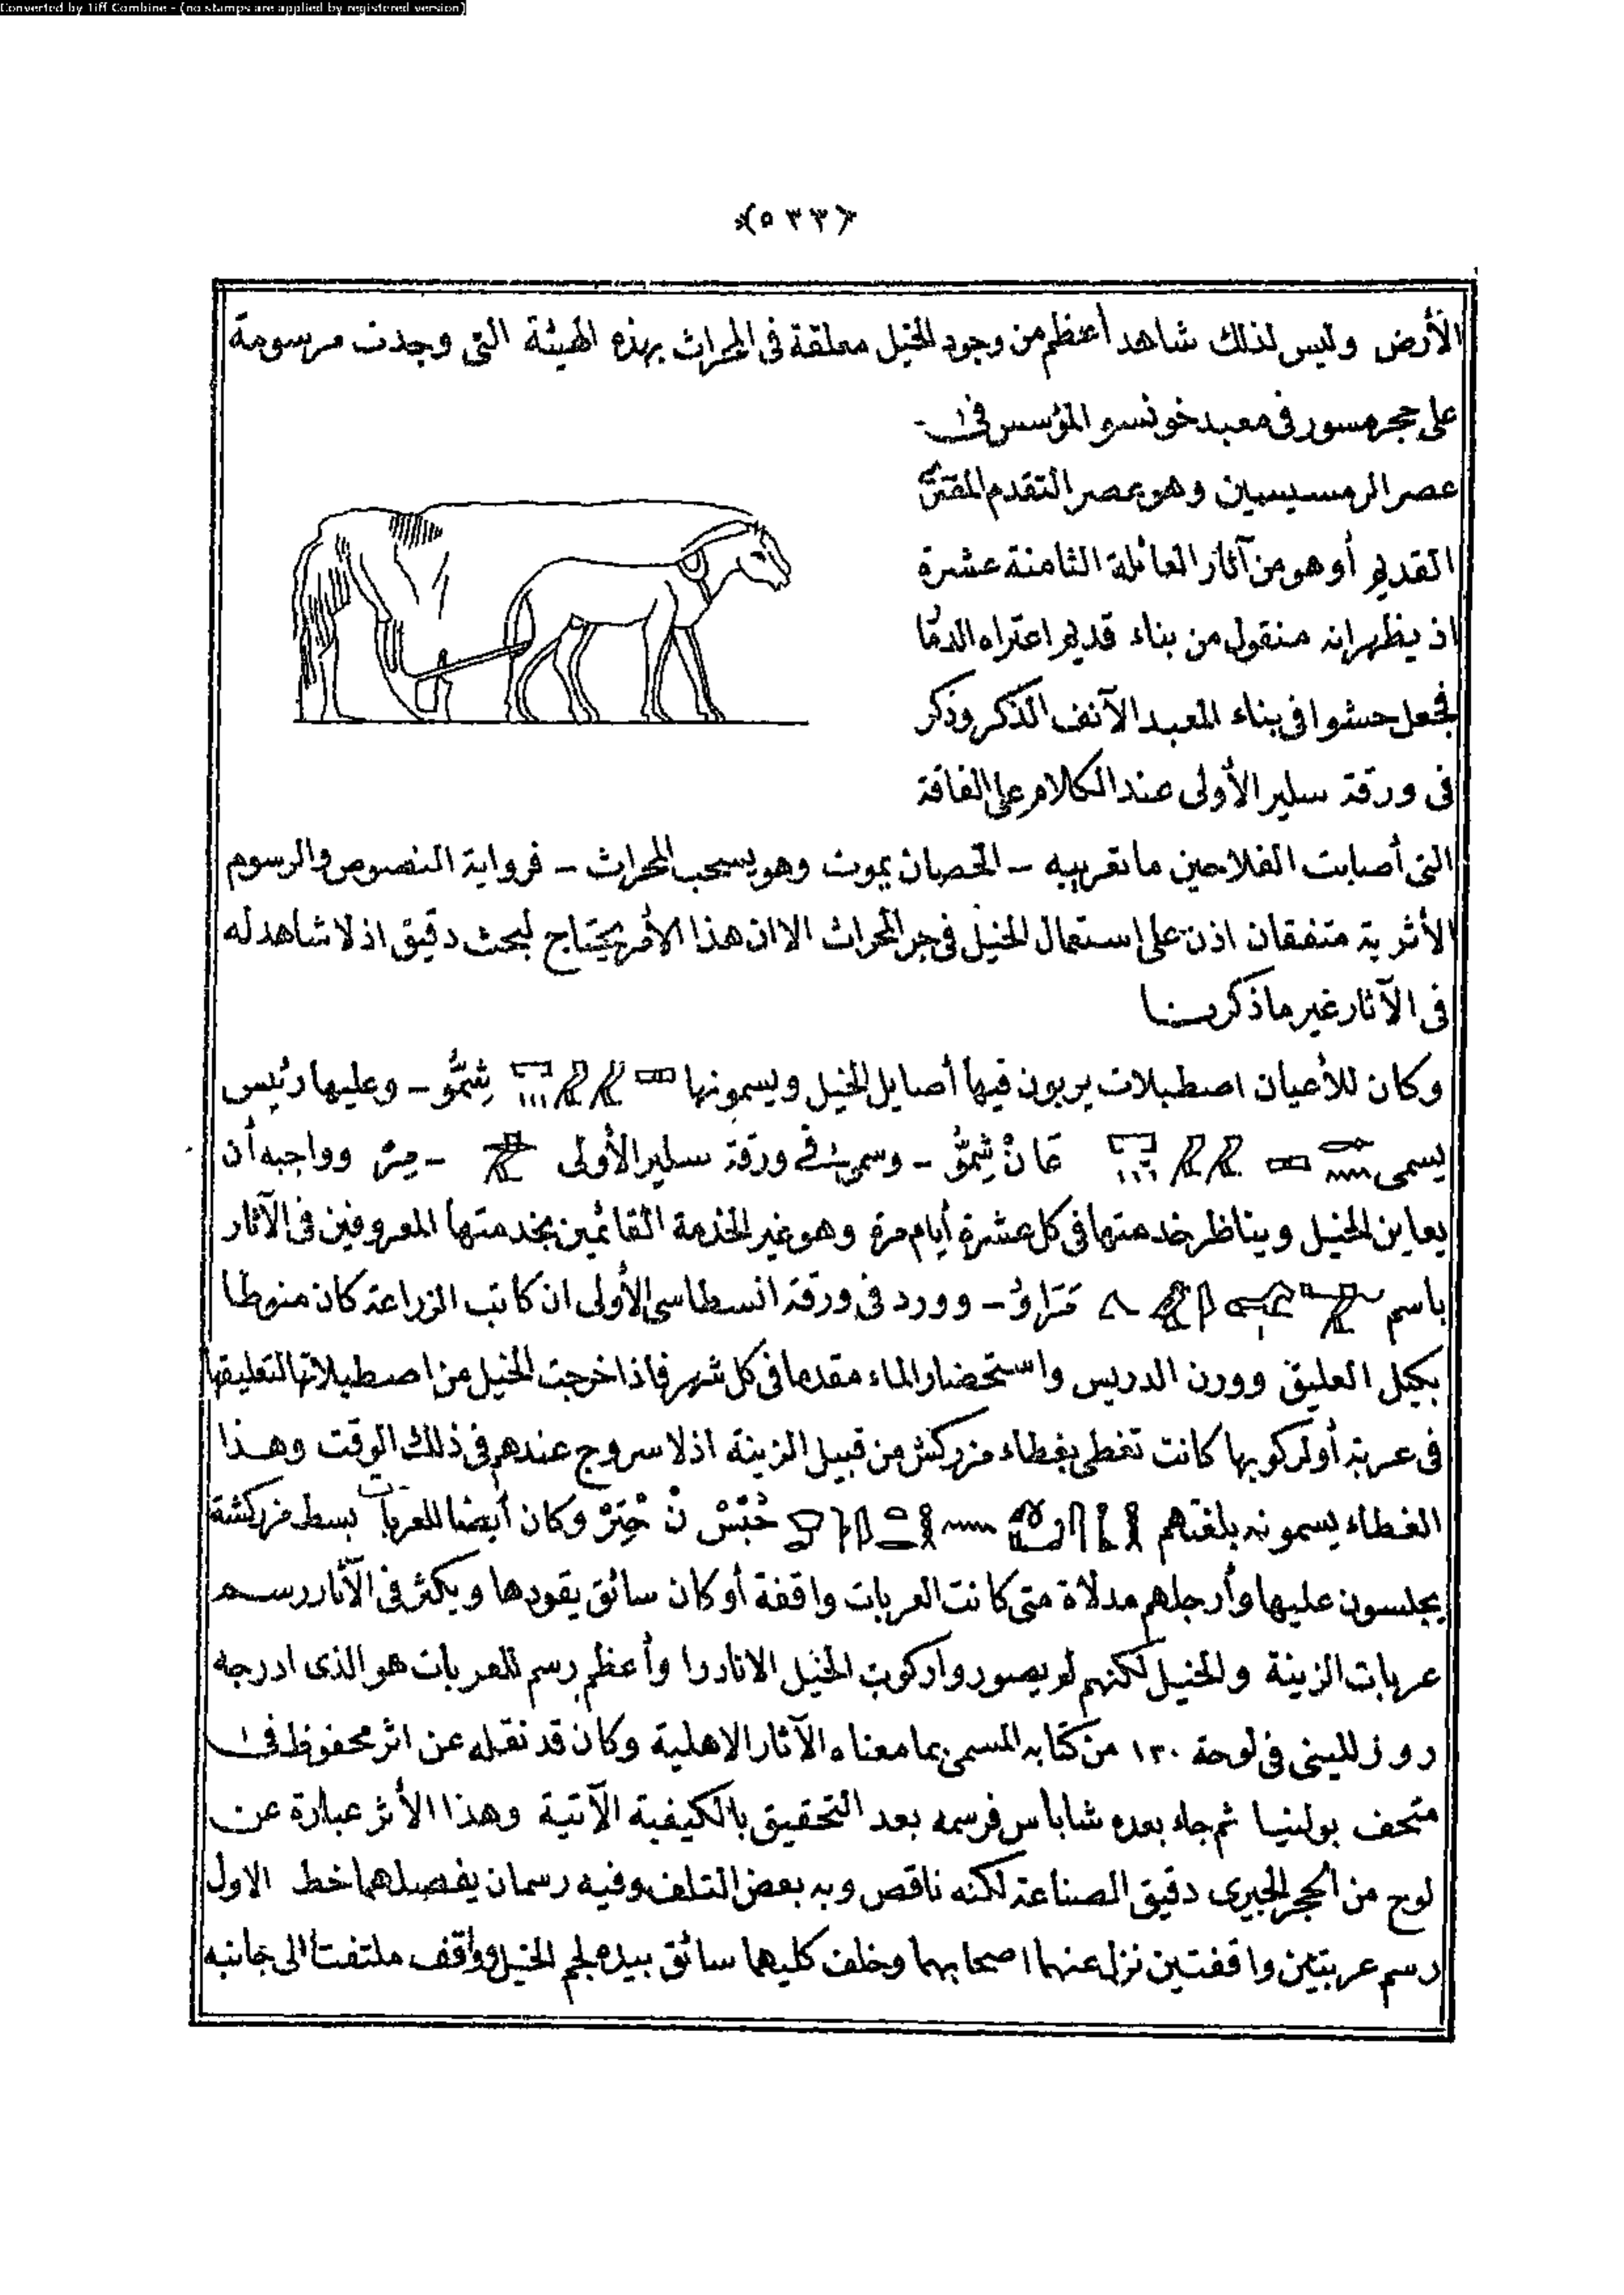 Converted by Tiff Combine - (no stamps are applied by registered version)
﴿٥٣٣﴾
الأرض وليس لذلك شاهد أعظم من وجود الخيل معلقة فى المحراث بهذه الهيئة التى وجدت مرسومة
على حجر مسور فى معبد خونسو المؤسس فى
عصر الرمسيسيين وهو عصر التقدم
القديم أو هو من آثار العائلة الثامنة عشرة
اذ يظهر انه منقول من بناء قديم اعتراه
فجعل حشوا فى بناء المعبد الآنف الذكر وذكر
فى ورقة سلير الأولى عند الكلام على الفاقة
التى أصابت الفلاحين ما تعريبه - الحصان يموت وهو يسحب المحراث - فرواية النصوص والرسوم
الأثرية متفقان اذن على استعمال الخيل فى جر المحراث الا ان هذا الأمر يحتاج لبحث دقيق اذ لا شاهد له
فى الآثار غير ما ذكرنا
وكان للأعيان اصطبلات يربون فيها أصايل الخيل ويسمونها شِمُّو - وعليها رئيس
يسمى عَانْ شِمُّو - وسميت فى ورقة سلير الأولى - مِرْ وواجبه أن
يعاين الخيل ويناظر خدمتها فى كل عشرة أيام مرة وهو غير الخدمة القائمين بخدمتها المعروفين فى الآثار
باسم - وورد فى ورقة انسطاسى الأولى ان كاتب الزراعة كان منوطا
بكيل العليق ووزن الدريس واستحضار الماء مقدما فى كل شهر فاذا خرجت الخيل من اصطبلاتها لتعليقها
فى عربة أو لركوبها كانت تغطى بغطاء مزركش من قبيل الزينة اذ لا سروج عندهم فى ذلك الوقت وهذا
الغطاء يسمونه بلغتهم حُبْسْ نْ حِتَرْ وكان أيضا للعربات بسط مزركشة
يجلسون عليها وأرجلهم مدلاة متى كانت العربات واقفة أو كان سائق يقودها ويكثر فى الآثار رسم
عربات الزينة والخيل لكنهم لم يصوروا ركوب الخيل الا نادرا وأعظم رسم للعربات هو الذى ادرجه
روزللينى فى لوحة ١٣٠ من كتابه المسمى بما معناه الآثار الاهلية وكان قد نقله عن اثر محفوظ فى
متحف بولنيا ثم جاء بعده شاباس فرسمه بعد التحقيق بالكيفية الآتية وهذا الأثر عبارة عن
لوح من الحجر الجيرى دقيق الصناعة لكنه ناقص وبه بعض التلف وفيه رسمان يفصلهما خط الاول
رسم عربتين واقفتين نزل عنهما اصحابهما وخلف كليهما سائق بيده لجم الخيل وواقف ملتفتا الى جانبه